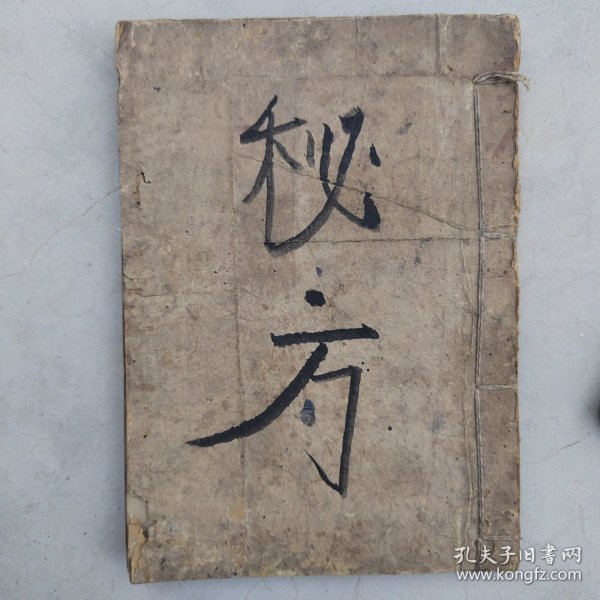 秘方
孔夫子旧書网
www.kongfz.com